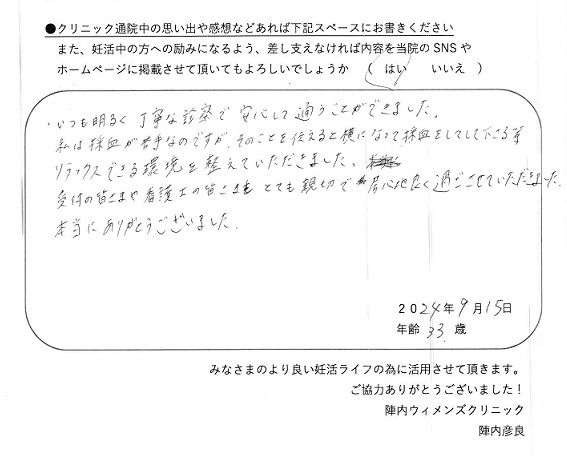 ●クリニック通院中の思い出や感想などあれば下記スペースにお書きください
また、妊活中の方への励みになるよう、差し支えなければ内容を当院の SNS や
ホームページに掲載させて頂いてもよろしいでしょうか （ はい いいえ ）
・いつも明るく丁寧な診察で安心して通うことができました。
私は採血が苦手なのですが、そのことを伝えると横になって採血をしてして下さる等
リラックスできる環境を整えていただきました。
受付の皆さまや看護士の皆さまもとても親切で居心地良く過ごさせていただきました。
本当にありがとうございました。
2024年9月15日
年齢 33 歳
みなさまのより良い妊活ライフの為に活用させて頂きます。
ご協力ありがとうございました！
陣内ウィメンズクリニック
陣内彦良